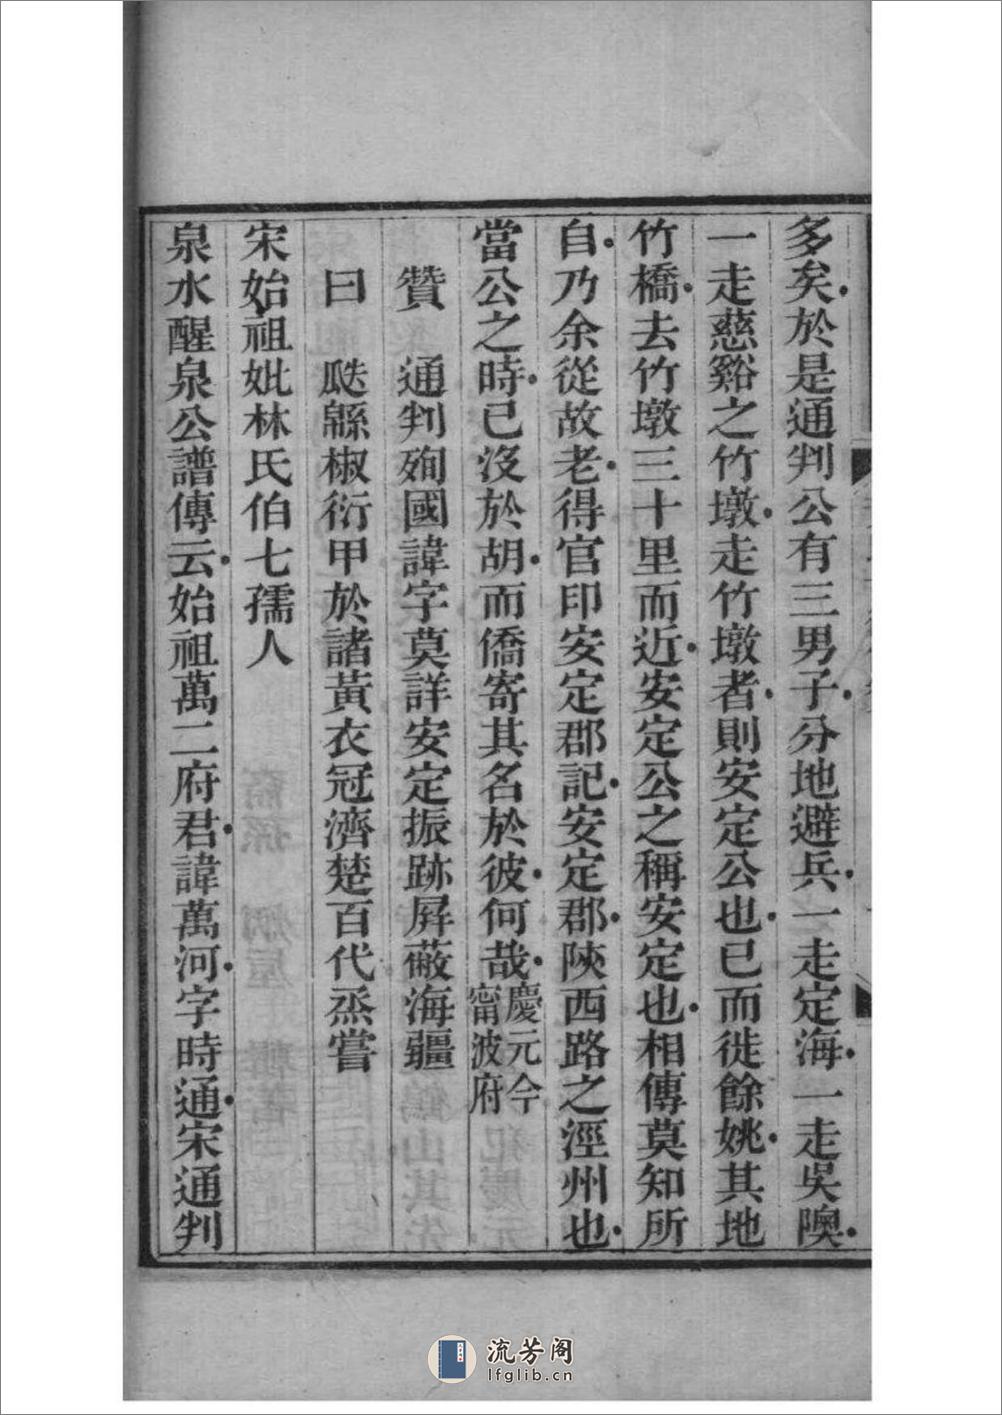 多矣於是通判公有三男子分地避兵一走定海一走吳隩
一走慈谿之竹墩走竹墩者則安定公也已而徙餘姚其地
竹橋去竹墩三十里而近安定公之稱安定也相傳莫知所
自乃余從故老得官印安定郡記安定郡陝西路之涇州也
當公之時已沒於胡而僑寄其名於彼何哉慶元今甯波府
贊 通判殉國諱字莫詳安定振跡屛蔽海疆
曰 瓞緜椒衍甲於諸黃衣冠濟楚百代烝嘗
宋始祖妣林氏伯七孺人
泉水醒泉公譜傳云始祖萬二府君諱萬河字時通宋通判
流芳阁
lfglib.cn